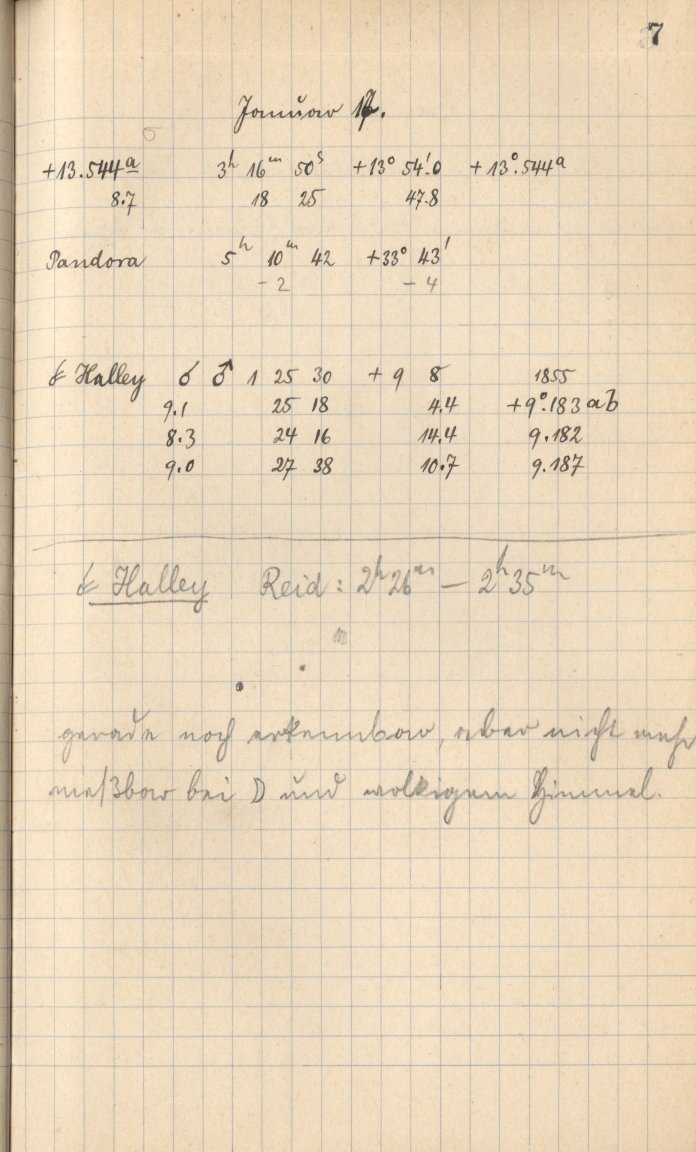 7
Januar 17.
+13.544a 3h 16m 50s +13° 54'.0 +13°.544a
8.7 18 25 47.8
Pandora 5h 10m 42 +33° 43'
-2 -4
☄ Halley ☌ ♂ 1 25 30 + 9 8 1855
9.1 25 18 4.4 +9°.183 ab
8.3 24 16 14.4 9.182
9.0 27 38 10.7 9.187
☄ Halley Reid: 2h 26m – 2h 35m
gerade noch erkennbar, aber nicht mehr
meßbar bei ☽ und wolkigem Himmel.